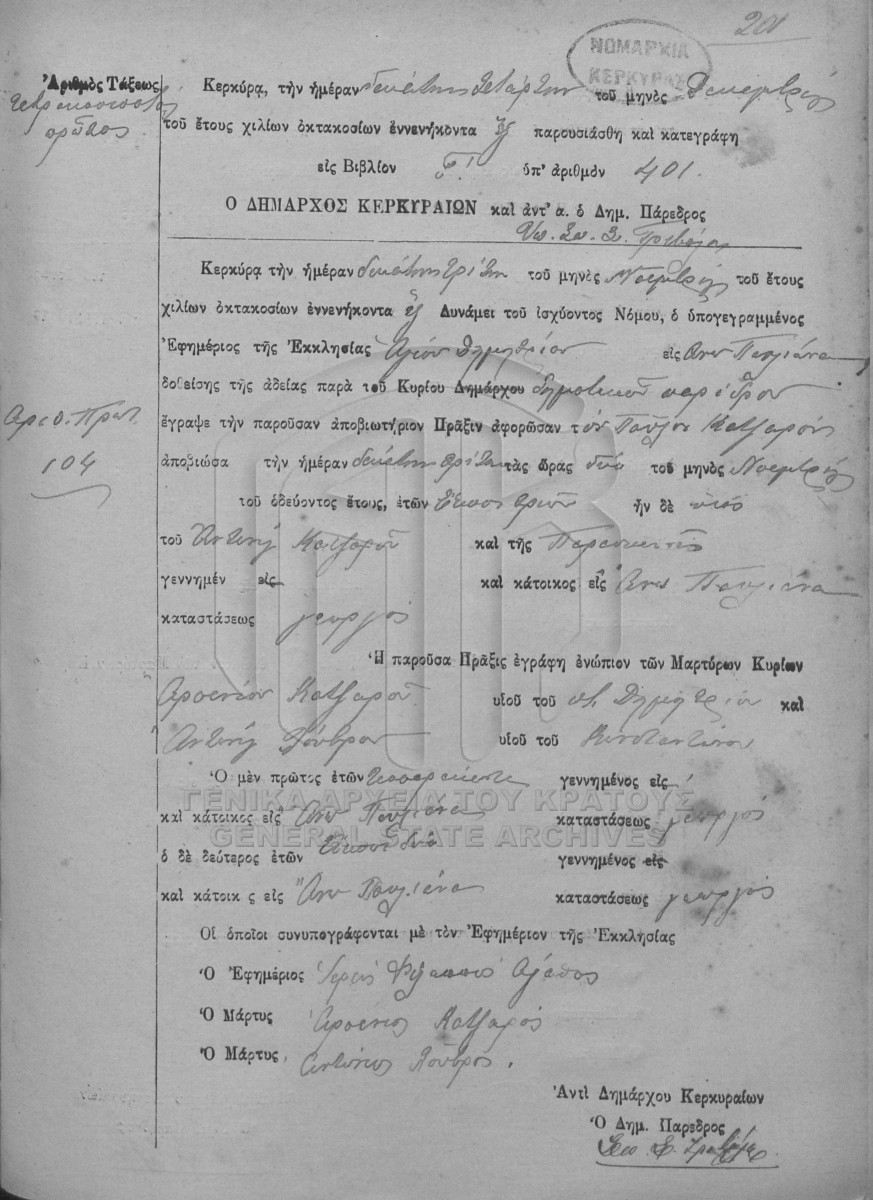 201
ΝΟΜΑΡΧΙΑ
ΚΕΡΚΥΡΑΣ
Ἀριθμὸς Τάξεως
πρῶτος
Κερκύρᾳ, τὴν ἡμέραν δεκάτην τετάρτην τοῦ μηνὸς Δεκεμβρίου
τοῦ ἔτους χιλίων ὀκτακοσίων ἐννενήκοντα ἓξ παρουσιάσθη καὶ κατεγράφη
εἰς Βιβλίον Γ! ὑπ' ἀριθμὸν 401.
Ο ΔΗΜΑΡΧΟΣ ΚΕΡΚΥΡΑΙΩΝ καὶ ἀντ' α. ὁ Δημ. Πάρεδρος
Κερκύρᾳ τὴν ἡμέραν δεκάτην τρίτην τοῦ μηνὸς Νοεμβρίου τοῦ ἔτους
χιλίων ὀκτακοσίων ἐννενήκοντα ἓξ Δυνάμει τοῦ ἰσχύοντος Νόμου, ὁ ὑπογεγραμμένος
Ἐφημέριος τῆς Ἐκκλησίας Ἁγίου Δημητρίου εἰς Ἄνω Παυλιάνα
δοθείσης τῆς ἀδείας παρὰ τοῦ Κυρίου Δημάρχου δημοτικοῦ παρέδρου
ἔγραψε τὴν παροῦσαν ἀποβιωτήριον Πρᾶξιν ἀφορῶσαν τὸν Παῦλον Κατζαρὸν
Αριθ. Πρωτ.
104
ἀποβιώσα τὴν ἡμέραν δεκάτην τρίτην τὰς ὥρας δύο τοῦ μηνὸς Νοεμβρίου
τοῦ ὁδεύοντος ἔτους, ἐτῶν Εἴκοσι τριῶν ἦν δὲ υἱὸς
τοῦ Ἀντώνη Κατζαροῦ καὶ τῆς Παρασκευῆς
γεννημέν εἰς καὶ κάτοικος εἰς Ἄνω Παυλιάνα
καταστάσεως γεωργὸς
Ἡ παροῦσα Πρᾶξις ἐγράφη ἐνώπιον τῶν Μαρτύρων Κυρίων
Ἀρσενίου Κατζαροῦ υἱοῦ τοῦ Δημητρίου καὶ
Ἀντώνη υἱοῦ τοῦ Κωνσταντίνου
Ὁ μὲν πρῶτος ἐτῶν γεννημένος εἰς
καὶ κάτοικος εἰς Ἄνω Παυλιάνα καταστάσεως γεωργὸς
ὁ δὲ δεύτερος ἐτῶν Εἴκοσι δύο γεννημένος εἰς
καὶ κάτοικ ς εἰς Ἄνω Παυλιάνα καταστάσεως γεωργὸς
ΓΕΝΙΚΑ ΑΡΧΕΙΑ ΤΟΥ ΚΡΑΤΟΥΣ
GENERAL STATE ARCHIVES
Οἱ ὁποῖοι συνυπογράφονται μὲ τὸν Ἐφημέριον τῆς Ἐκκλησίας
Ὁ Ἐφημέριος Ἱερεὺς
Ὁ Μάρτυς Ἀρσένιος Κατζαρός
Ὁ Μάρτυς, Ἀντώνιος
Ἀντὶ Δημάρχου Κερκυραίων
Ὁ Δημ. Παρεδρος